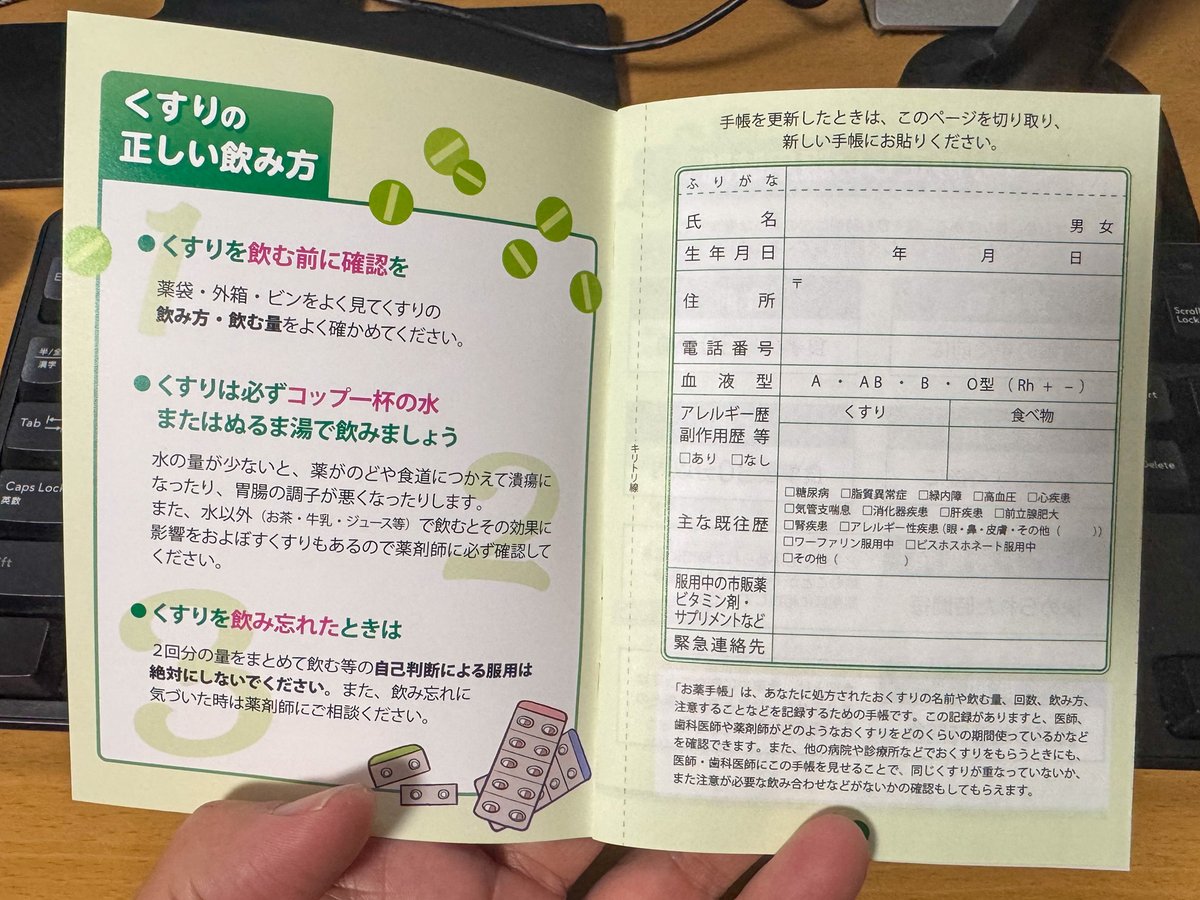 くすりの
正しい飲み方
1
くすりを飲む前に確認を
薬袋・外箱・ビンをよく見てくすりの
飲み方・飲む量をよく確かめてください。
2
くすりは必ずコップ一杯の水
またはぬるま湯で飲みましょう
水の量が少ないと、薬がのどや食道につかえて潰瘍に
なったり、胃腸の調子が悪くなったりします。
また、水以外（お茶・牛乳・ジュース等）で飲むとその効果に
影響をおよぼすくすりもあるので薬剤師に必ず確認して
ください。
3
くすりを飲み忘れたときは
2回分の量をまとめて飲む等の自己判断による服用は
絶対にしないでください。また、飲み忘れに
気づいた時は薬剤師にご相談ください。
キリトリ線
手帳を更新したときは、このページを切り取り、
新しい手帳にお貼りください。
ふりがな
氏名 男 女
生年月日 年 月 日
住所 〒
電話番号
血液型 A ・ AB ・ B ・ O型 （ Rh + − ）
アレルギー歴 くすり 食べ物
副作用歴 等
□あり □なし
主な既往歴
□糖尿病 □脂質異常症 □緑内障 □高血圧 □心疾患
□気管支喘息 □消化器疾患 □肝疾患 □前立腺肥大
□腎疾患 □アレルギー性疾患（眼・鼻・皮膚・その他（ ））
□ワーファリン服用中 □ビスホスホネート服用中
□その他（ ）
服用中の市販薬
ビタミン剤・
サプリメントなど
緊急連絡先
「お薬手帳」は、あなたに処方されたおくすりの名前や飲む量、回数、飲み方、
注意することなどを記録するための手帳です。この記録がありますと、医師、
歯科医師や薬剤師がどのようなおくすりをどのくらいの期間使っているかなど
を確認できます。また、他の病院や診療所などでおくすりをもらうときにも、
医師・歯科医師にこの手帳を見せることで、同じくすりが重なっていないか、
また注意が必要な飲み合わせなどがないかの確認もしてもらえます。
半/全
漢字
Tab
Caps Lock
英数
Scroll
Lock